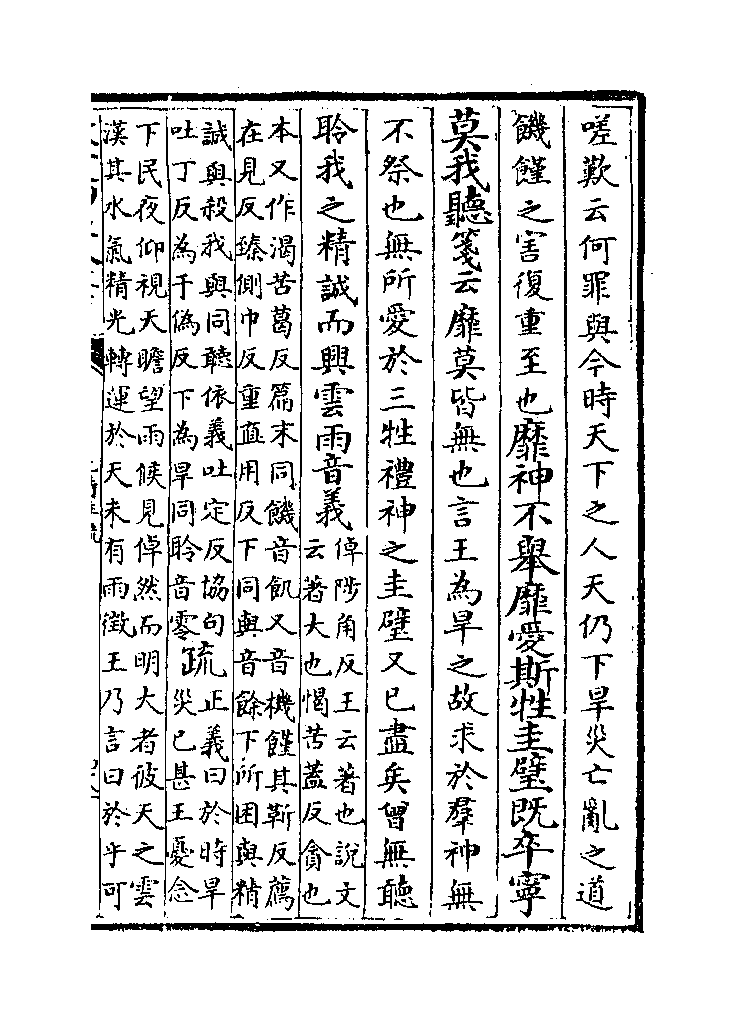 嗟歎云何罪與今時天下之人天仍下旱災亡亂之道
饑饉之害復重至也靡神不舉靡愛斯牲圭璧既卒寧
莫我聽箋云靡莫皆無也言王為旱之故求於羣神無
不祭也無所愛於三牲禮神之圭璧又已盡矣曾無聽
聆我之精誠而興雲雨音義
倬陟角反王云著也說文
云著大也愒苦蓋反貪也
本又作渴苦葛反篇末同饑音飢又音機饉其靳反薦
在見反臻側巾反重直用反下同與音餘下所困與精
誠與殺我與同聽依義吐定反協句
吐丁反為于偽反下為旱同聆音零
疏
正義曰於時旱
災已甚王憂念
下民夜仰視天瞻望雨候見倬然而明大者彼天之雲
漢其水氣精光轉運於天未有雨徵王乃言曰於乎可